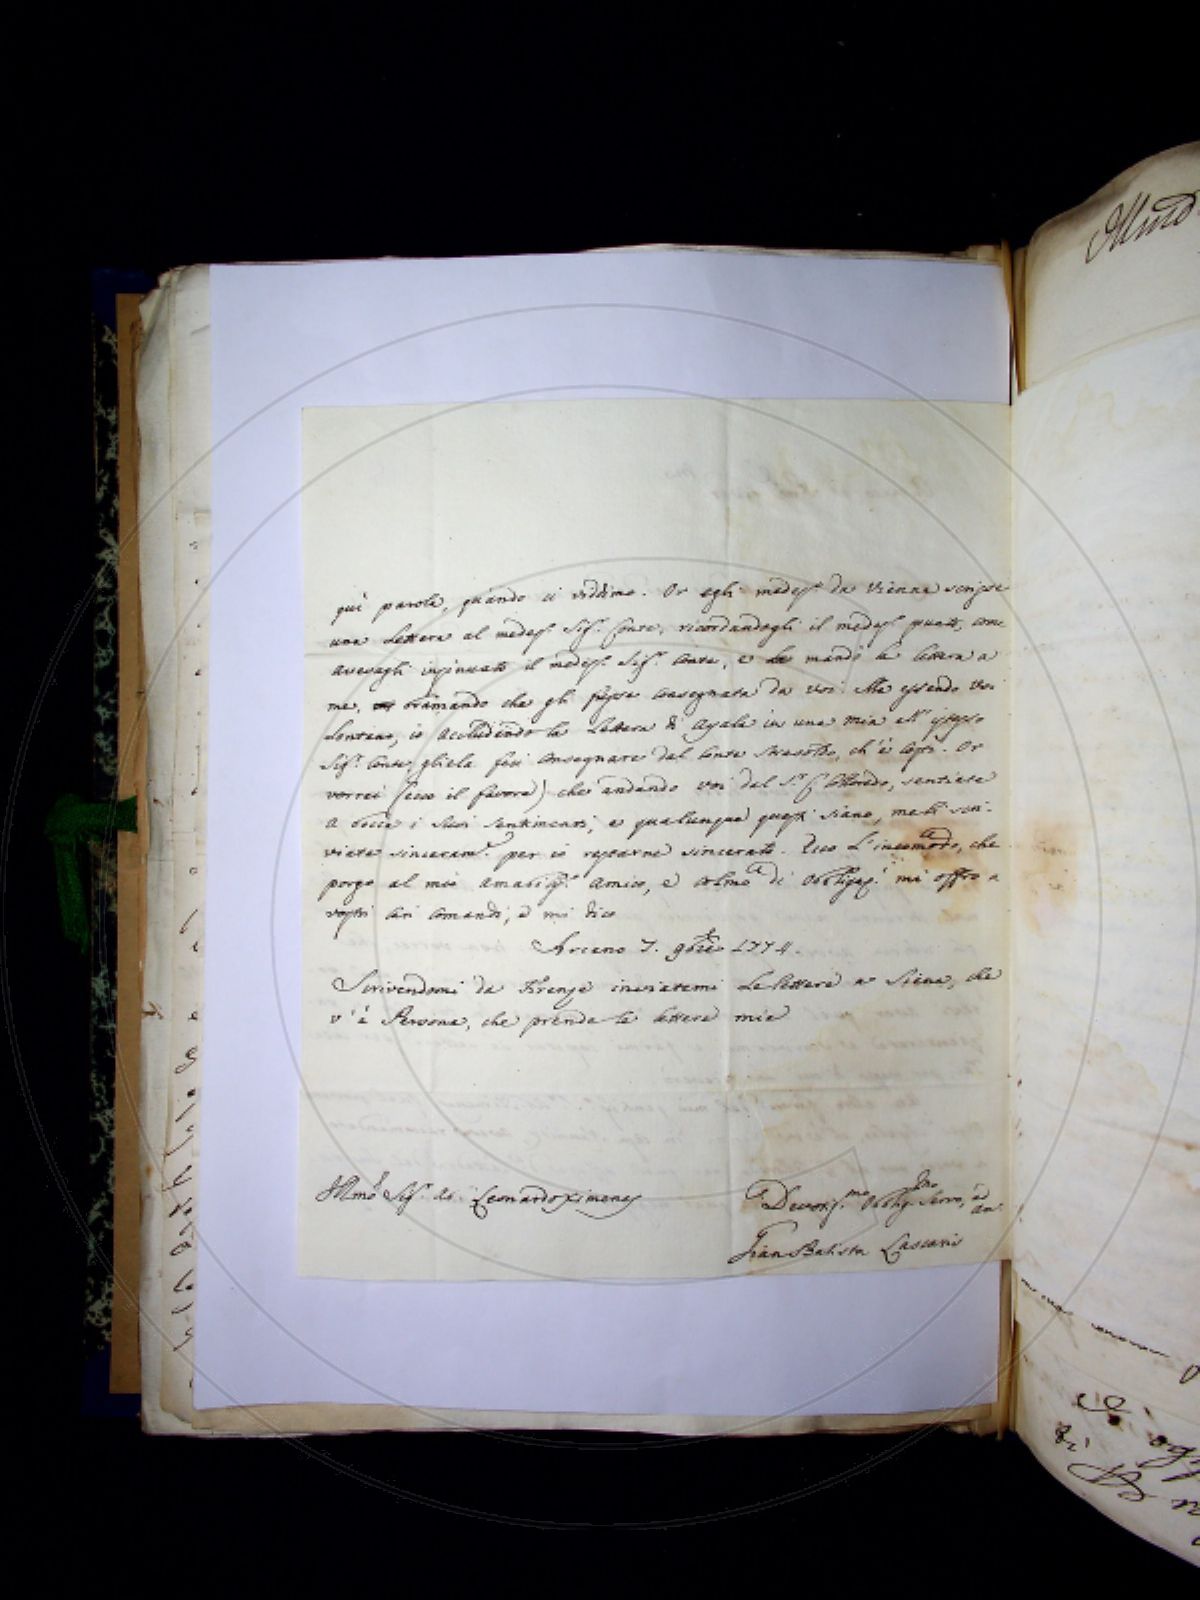 quì parola, quando ci viddimo. Or egli medes.º da Vienna scrisse
una Lettera al medes.º Sig.r Conte, ricordandogli il medes.º punto, come
avevagli insinuato il medes.º Sig.r Conte, e la mandò la lettera a
me, bramando che gli fosse consegnata da voi. Ma essendo voi
lontano, io accludendo la Lettera di Ayala in una mia all' istesso
Sig.r Conte gliela feci consegnare dal Conte ch' è costì. Or
vorrei (ecco il favore) che andando voi dal S.r C. Colloredo, sentiste
a bocca i suoi sentimenti, e qualunque questi siano, me li scri-
viate sinceram.e per io restarne sincerato. Ecco l' incomodo, che
porgo al mio amabiliss.º Amico, e colmo di obbligaz.i mi offro a
vostri cari comandi, e mi dico
Arceno 7. 9bre 1774.
Scrivendomi da Firenze inviatemi le lettere a Siena, che
v' è Persona, che prende le lettere mie
Illmo Sig.r Ab. Leonardo Ximenes
Devotiss.mo Obblig.mo Servo, ed Am.
Gian Batista Lascaris
Illmo